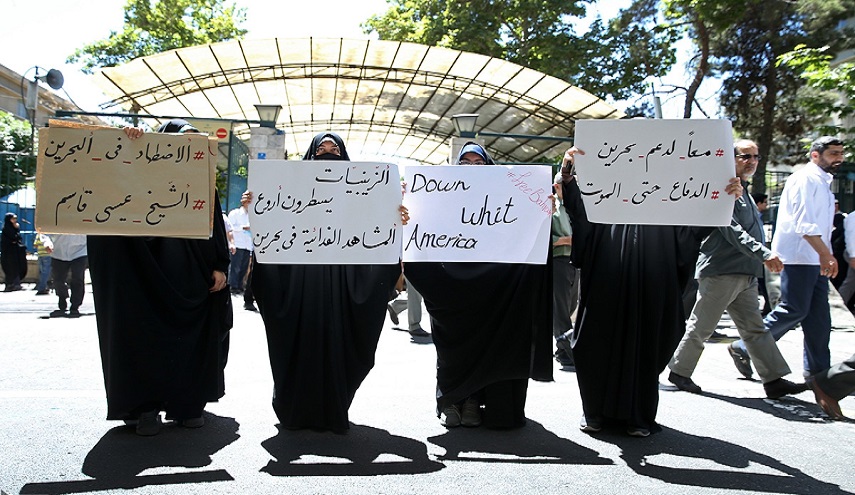 #ألاضطهاد_في_ألبحرين
#ألشيخ_عيسى_قاسم
ألزينبيات
يسطرون أروع
ألمشاهد الفدائية في بحرين
Down
whit
America
#معاً_لدعم_بحرين
#الدفاع_حتى_الموت